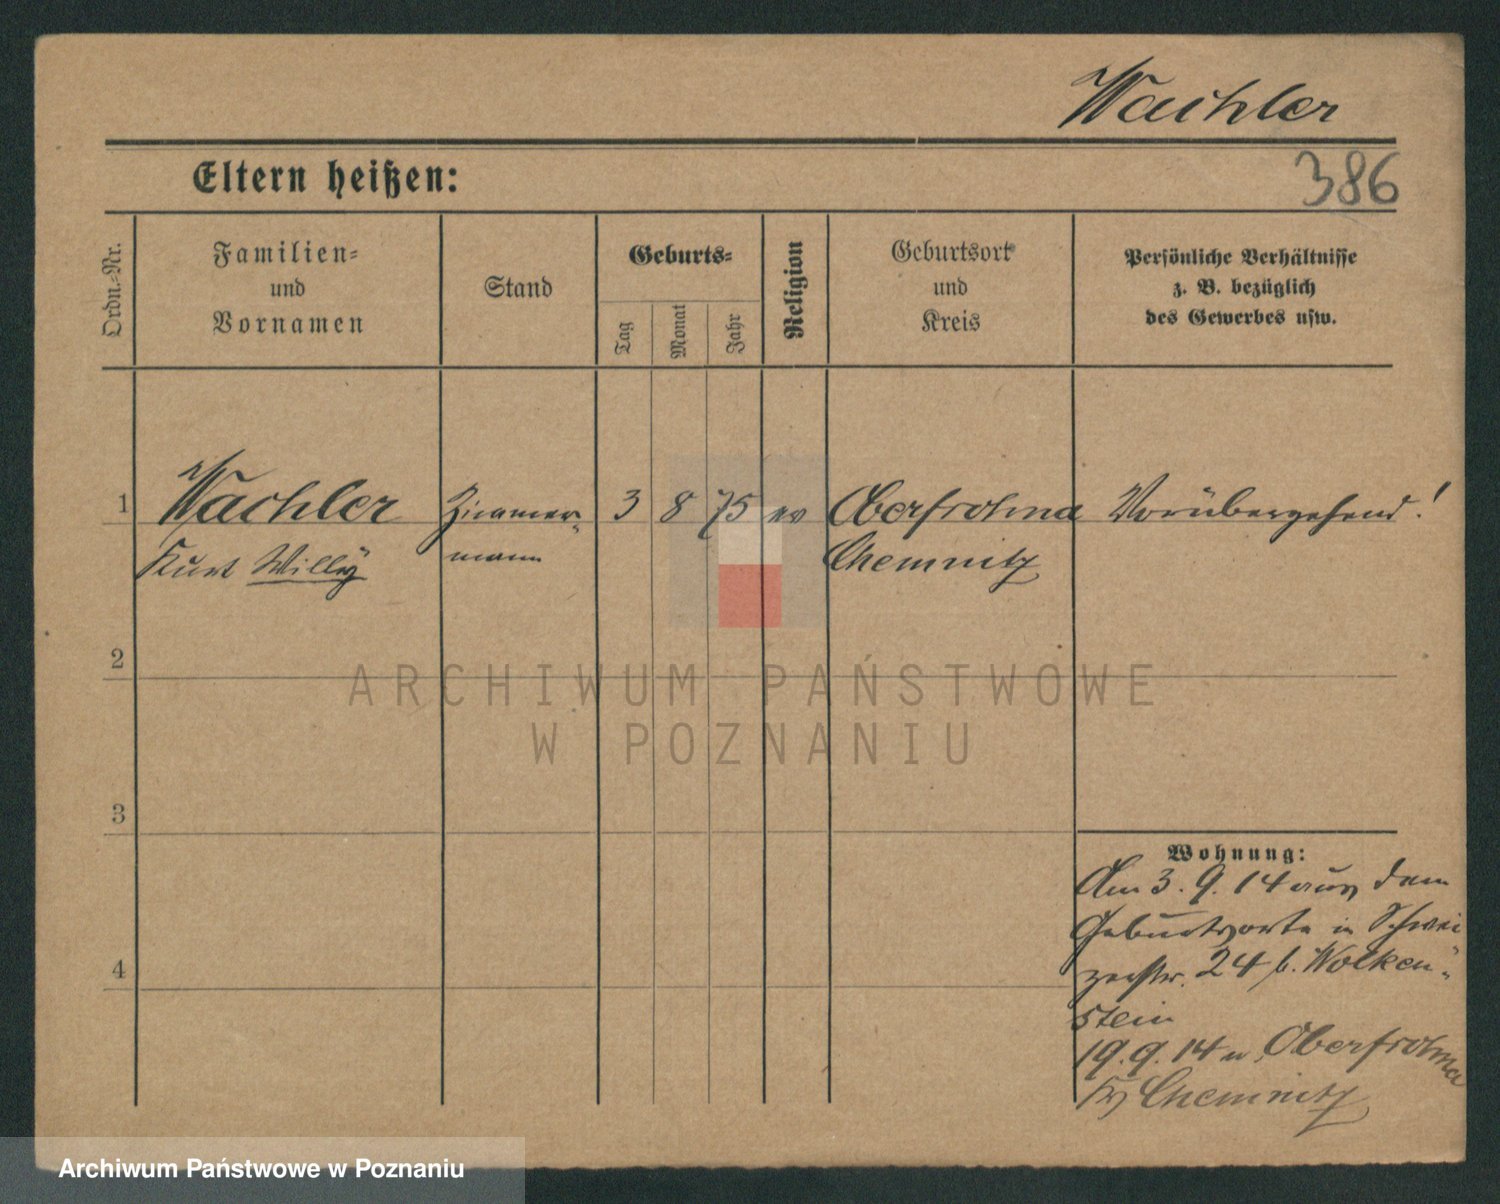 Wachler
Eltern heißen:
386
Ordn.-Nr.
Familien-
und
Vornamen
Stand
Geburts-
Tag
Monat
Jahr
Religion
Geburtsort
und
Kreis
Persönliche Verhältnisse
z. B. bezüglich
des Gewerbes usw.
1
Wachler
Kurt Willy
Zimmer-
mann
3
8
75
ev
Oberfrohna
Chemnitz
Vorübergehend!
2
3
4
Wohnung:
Am 3. 9. 14 aus dem
Geburtsorte in Schwei
zerstr. 24 b. Wolken-
stein
19. 9. 14 n. Oberfrohna
Kr Chemnitz
ARCHIWUM PAŃSTWOWE
W POZNANIU
Archiwum Państwowe w Poznaniu